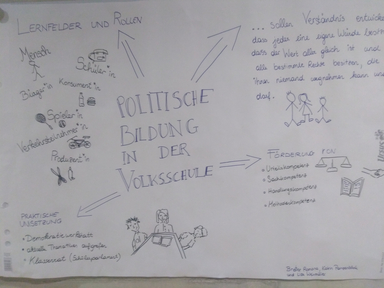 LERNFELDER UND ROLLEN
Mensch
Schüler*in
Bürger*in
Konsument*in
Spieler*in
Verkehrsteilnehmer*in
Produzent*in
POLITISCHE
BILDUNG
IN DER
VOLKSSCHULE
... sollen Verständnis
dass jeder eine eigene Würde
dass der Wert aller gleich ist und
alle bestimmte Rechte besitzen, die
ihnen niemand wegnehmen kann
darf.
FÖRDERUNG VON
• Urteilskompetenz
• Sachkompetenz
• Handlungskompetenz
• Methodenkompetenz
PRAKTISCHE
UMSETZUNG
• Demokratie
• aktuelle Thematiken aufgreifen
• Klassenrat (Schülerparlament)